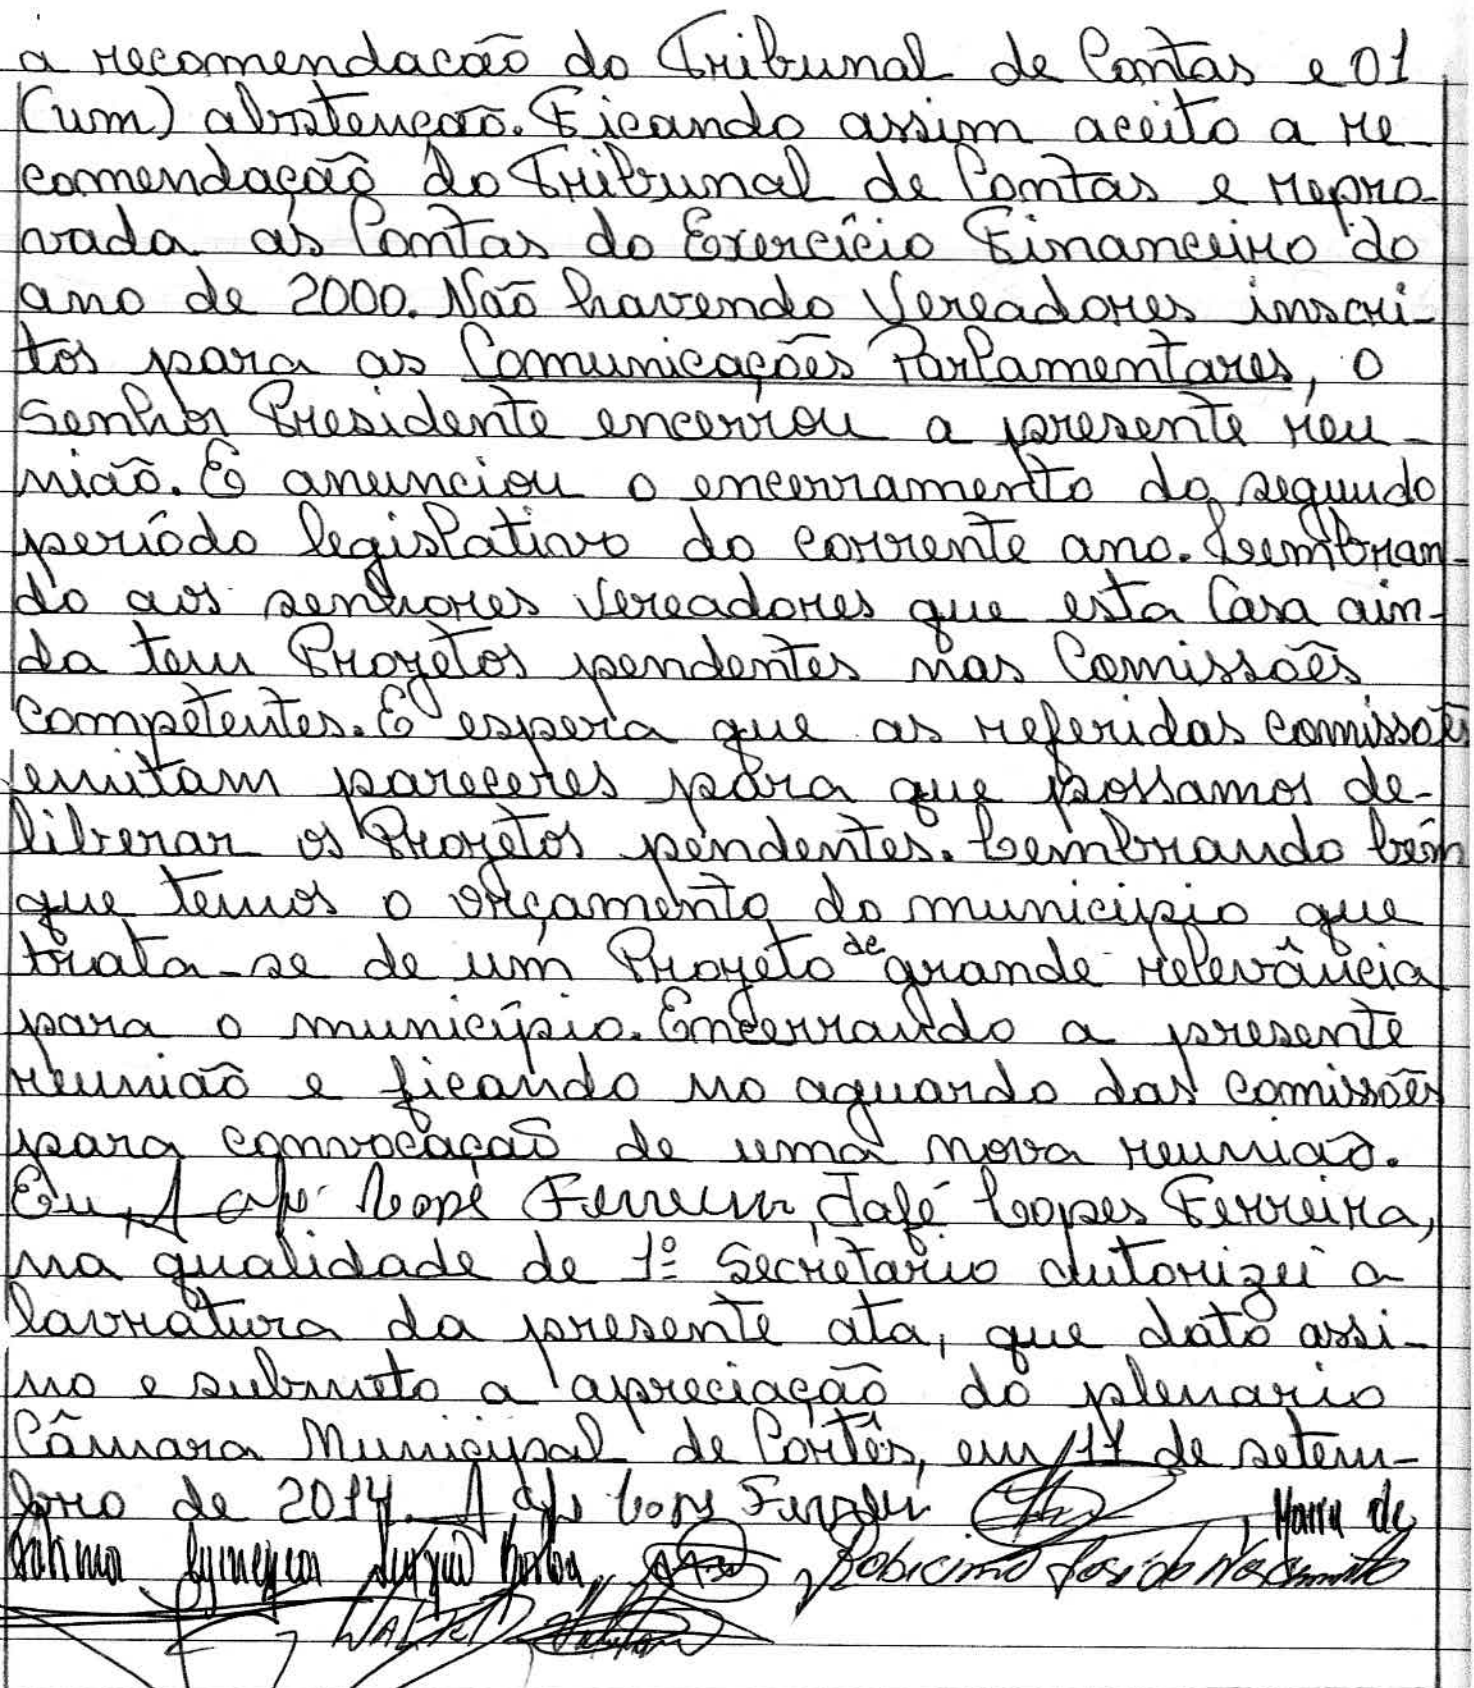 a recomendacão do Tribunal de Contas e 01
(um) abstenção. Ficando assim aceito a re-
comendação do Tribunal de Contas e repro-
vada as Contas do Exercício Financeiro do
ano de 2000. Não havendo Vereadores inscri-
tos para as Comunicações Parlamentares, o
Senhor Presidente encerrou a presente reu-
nião. E anunciou o encerramento do segundo
período legislativo do corrente ano. Lembran-
do aos senhores Vereadores que esta Casa ain-
da tem Projetos pendentes nas Comissões
Competentes. E espera que as referidas comissões
emitam pareceres para que possamos de-
liberar os Projetos pendentes. Lembrando bem
que temos o orçamento do município que
trata-se de um Projeto de grande relevância
para o município. Encerrando a presente
reunião e ficando no aguardo das comissões
para convocação de uma nova reunião.
Eu, Lope Ferreira, Jafé Lopes Ferreira,
na qualidade de 1º Secretario autorizei a
lavratura da presente ata, que dato assi-
no e submeto a apreciação do plenario
Câmara Municipal de Cortês, em 11 de setem-
bro de 2014. Maria de
Fátima Borba, José do Nascimento
Walter